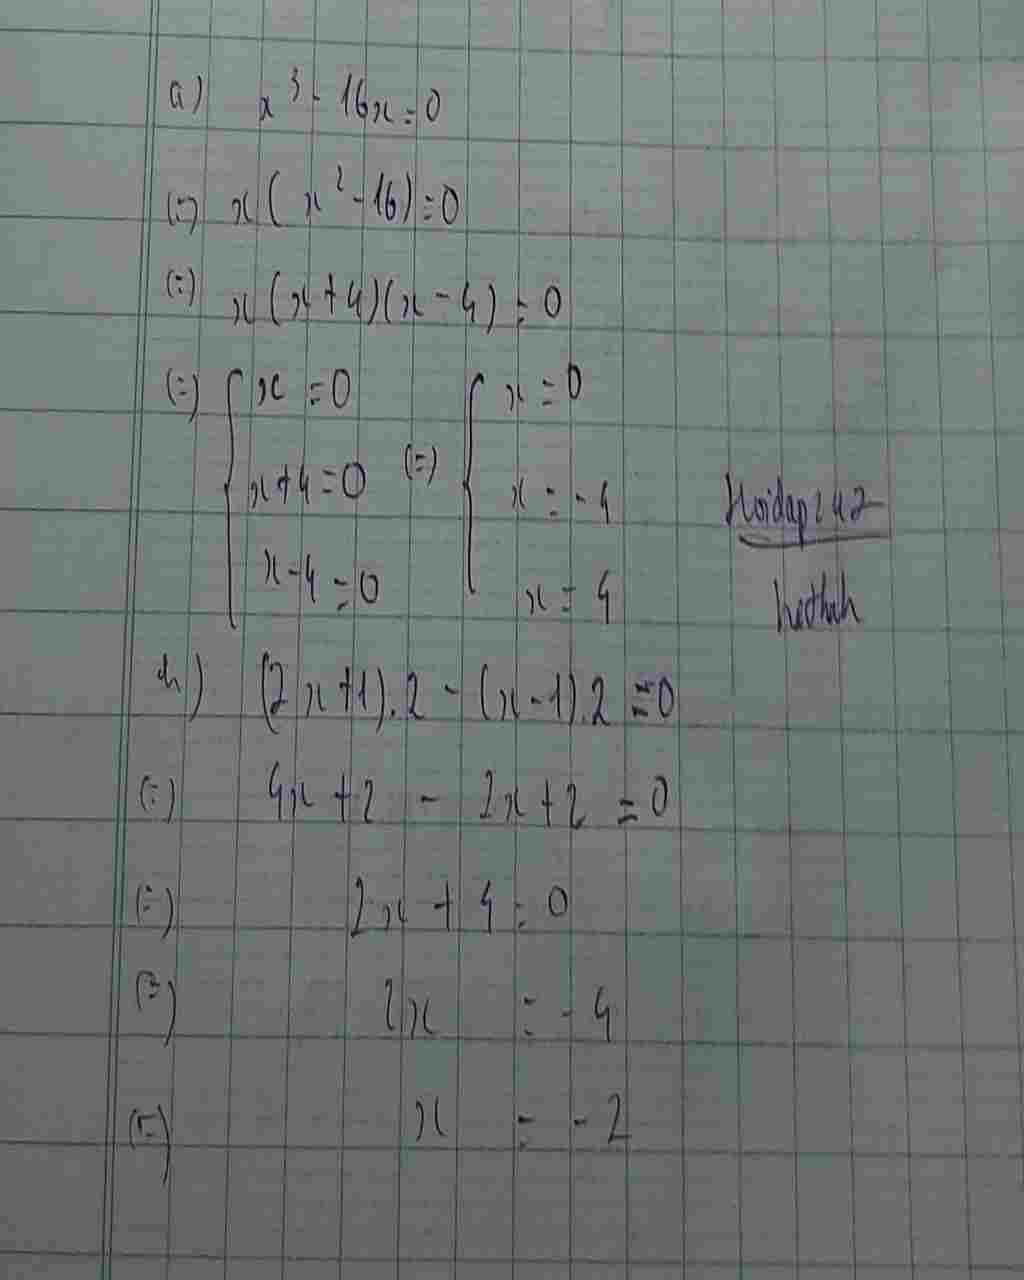 a) x³ - 16x = 0
(=) x(x² - 16) = 0
(=) x(x + 4)(x - 4) = 0
(=) { x = 0 (=) { x = 0
x + 4 = 0 x = -4
x - 4 = 0 x = 4
Hoidap247
(2x + 1).2 - (x - 1).2 = 0
(=) 4x + 2 - 2x + 2 = 0
(=) 2x + 4 = 0
(=) 2x = -4
(=) x = -2